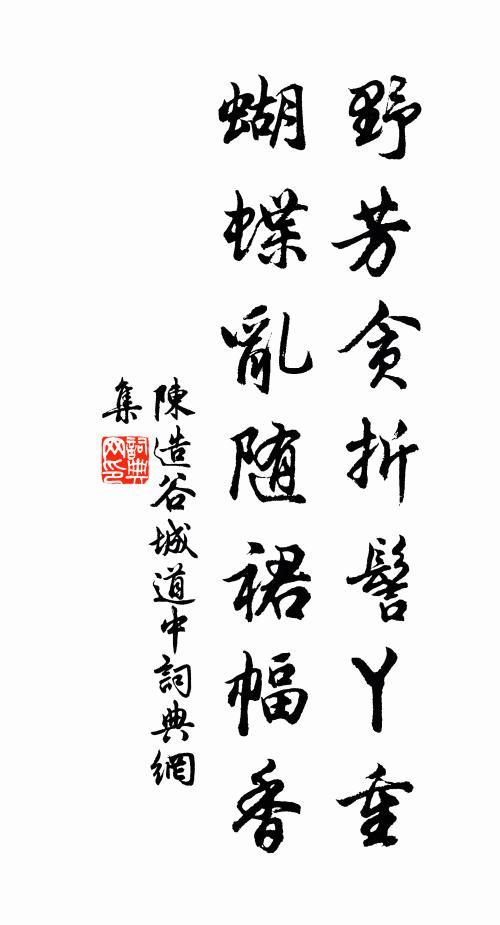 野芳貪折髻丫重
蝴蝶亂随裙幅香
陳造谷城道中詞典網
集
詞典
网印